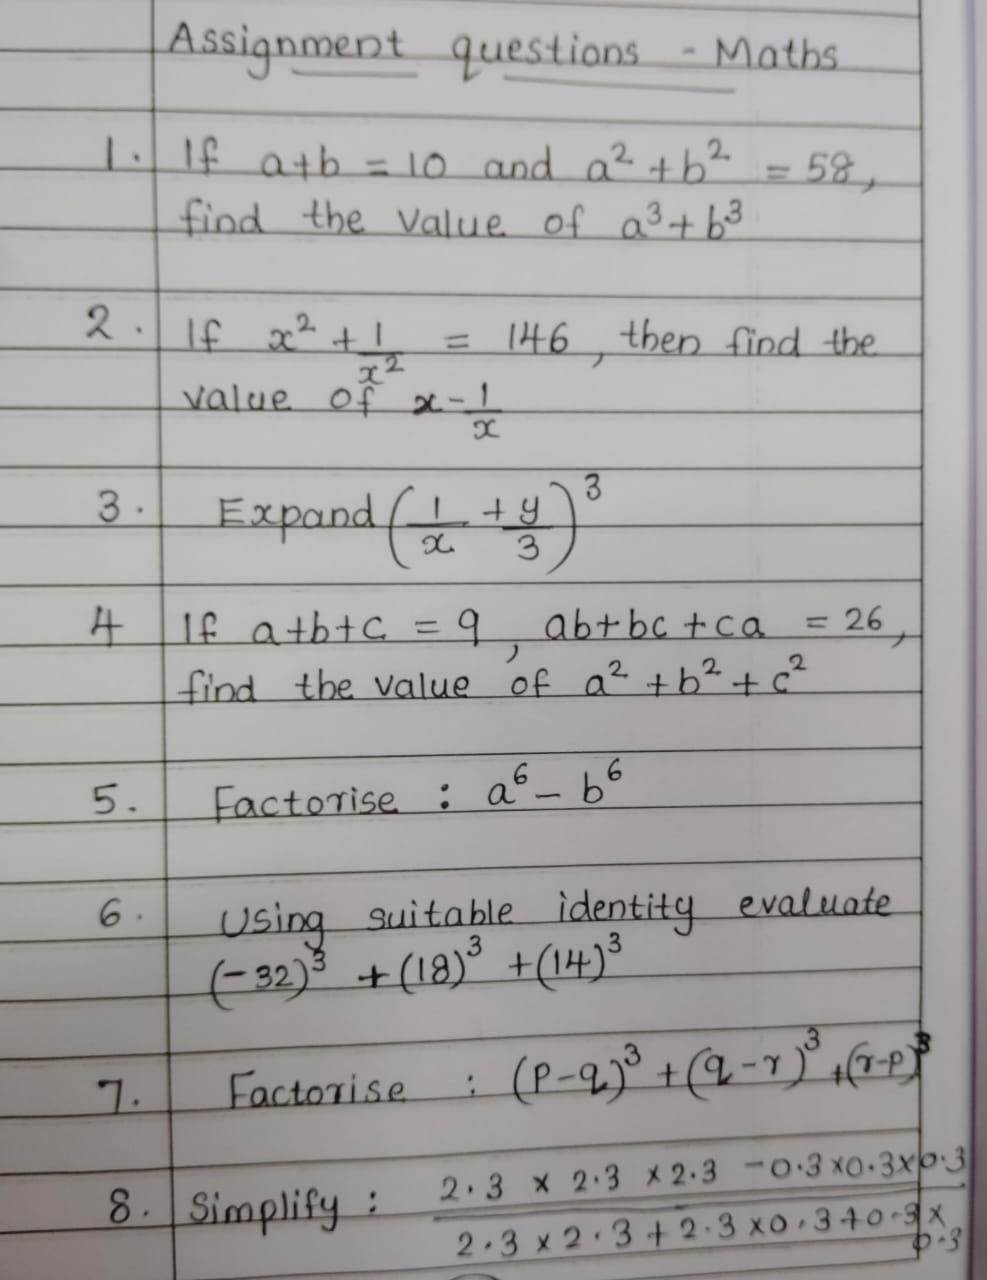 Assignment questions - Maths
1. If a+b = 10 and a² + b² = 58,
find the value of a³ + b³
2. If x² + 1/x² = 146, then find the
value of x - 1/x
3. Expand (1/x + y/3)³
4 If a+b+c = 9, ab+bc+ca = 26,
find the value of a² + b² + c²
5. Factorise : a⁶ - b⁶
6. Using suitable identity evaluate
(-32)³ + (18)³ + (14)³
7. Factorise : (p-q)³ + (q-r)³ + (r-p)³
8. Simplify : (2.3 x 2.3 x 2.3 - 0.3 x 0.3 x 0.3) / (2.3 x 2.3 + 2.3 x 0.3 + 0.3 x 0.3)